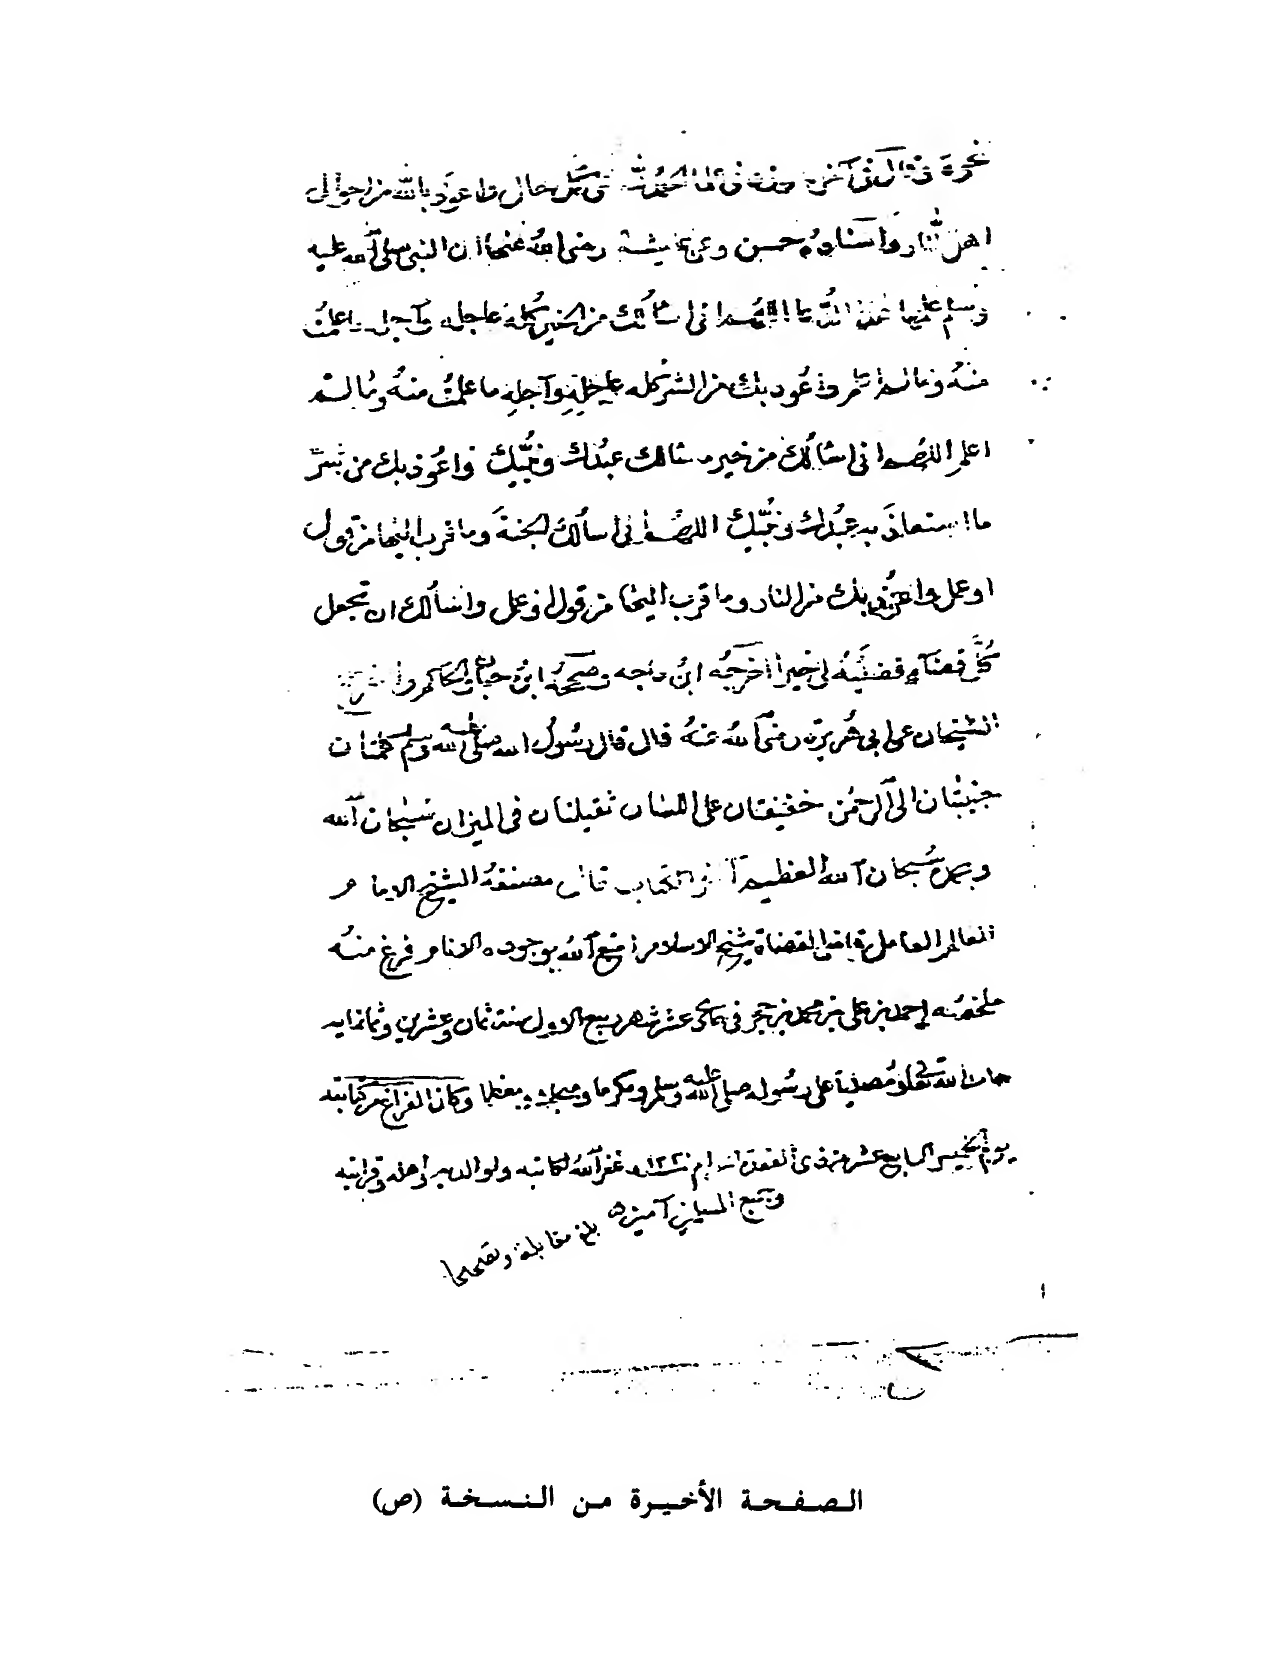 نحوه وقال في آخره وزدني علما الحمد لله على كل حال واعوذ بالله من احوال
اهل النار واسناده حسن وعن عايشة رضي الله عنها ان النبي صلى الله عليه
وسلم علمها هذا الدعا اللهم اني اسألك من الخير كله عاجله وآجله ما علمت
منه وما لم اعلم واعوذ بك من الشر كله عاجله وآجله ما علمت منه وما لم
اعلم اللهم اني اسألك من خير ما سالك عبدك ونبيك واعوذ بك من شر
ما استعاذ به عبدك ونبيك اللهم اني اسألك الجنة وما قرب اليها من قول
او عمل واعوذ بك من النار وما قرب اليها من قول او عمل واسألك ان تجعل
كل قضاء قضيته لي خيرا اخرجه ابن ماجه وصححه ابن حبان والحاكم واخرج
الشيخان عن ابي هريرة رضي الله عنه قال قال رسول الله صلى الله عليه وسلم كلمتان
حبيبتان الى الرحمن خفيفتان على اللسان ثقيلتان في الميزان سبحان الله
وبحمده سبحان الله العظيم آخر الكتاب قال مصنفه الشيخ الامام
العالم العامل قاضي القضاة شيخ الاسلام امتع الله بوجوده الانام فرغ منه
ملخصه احمد بن علي بن محمد بن حجر في حادي عشر شهر ربيع الاول سنة ثمان وعشرين وثمانمايه
حامدا لله تعالى ومصليا على رسوله صلى الله عليه وسلم ومكرما ومبجلا ومعظما وكان الفراغ من كتابته
يوم الخميس السابع عشر من ذي القعدة غفر الله لكاتبه ولوالديه واهله وقرابته
وجميع المسلمين آمين
بلغ مقابلة وتصحيحا
الصفحة الأخيرة من النسخة (ص)